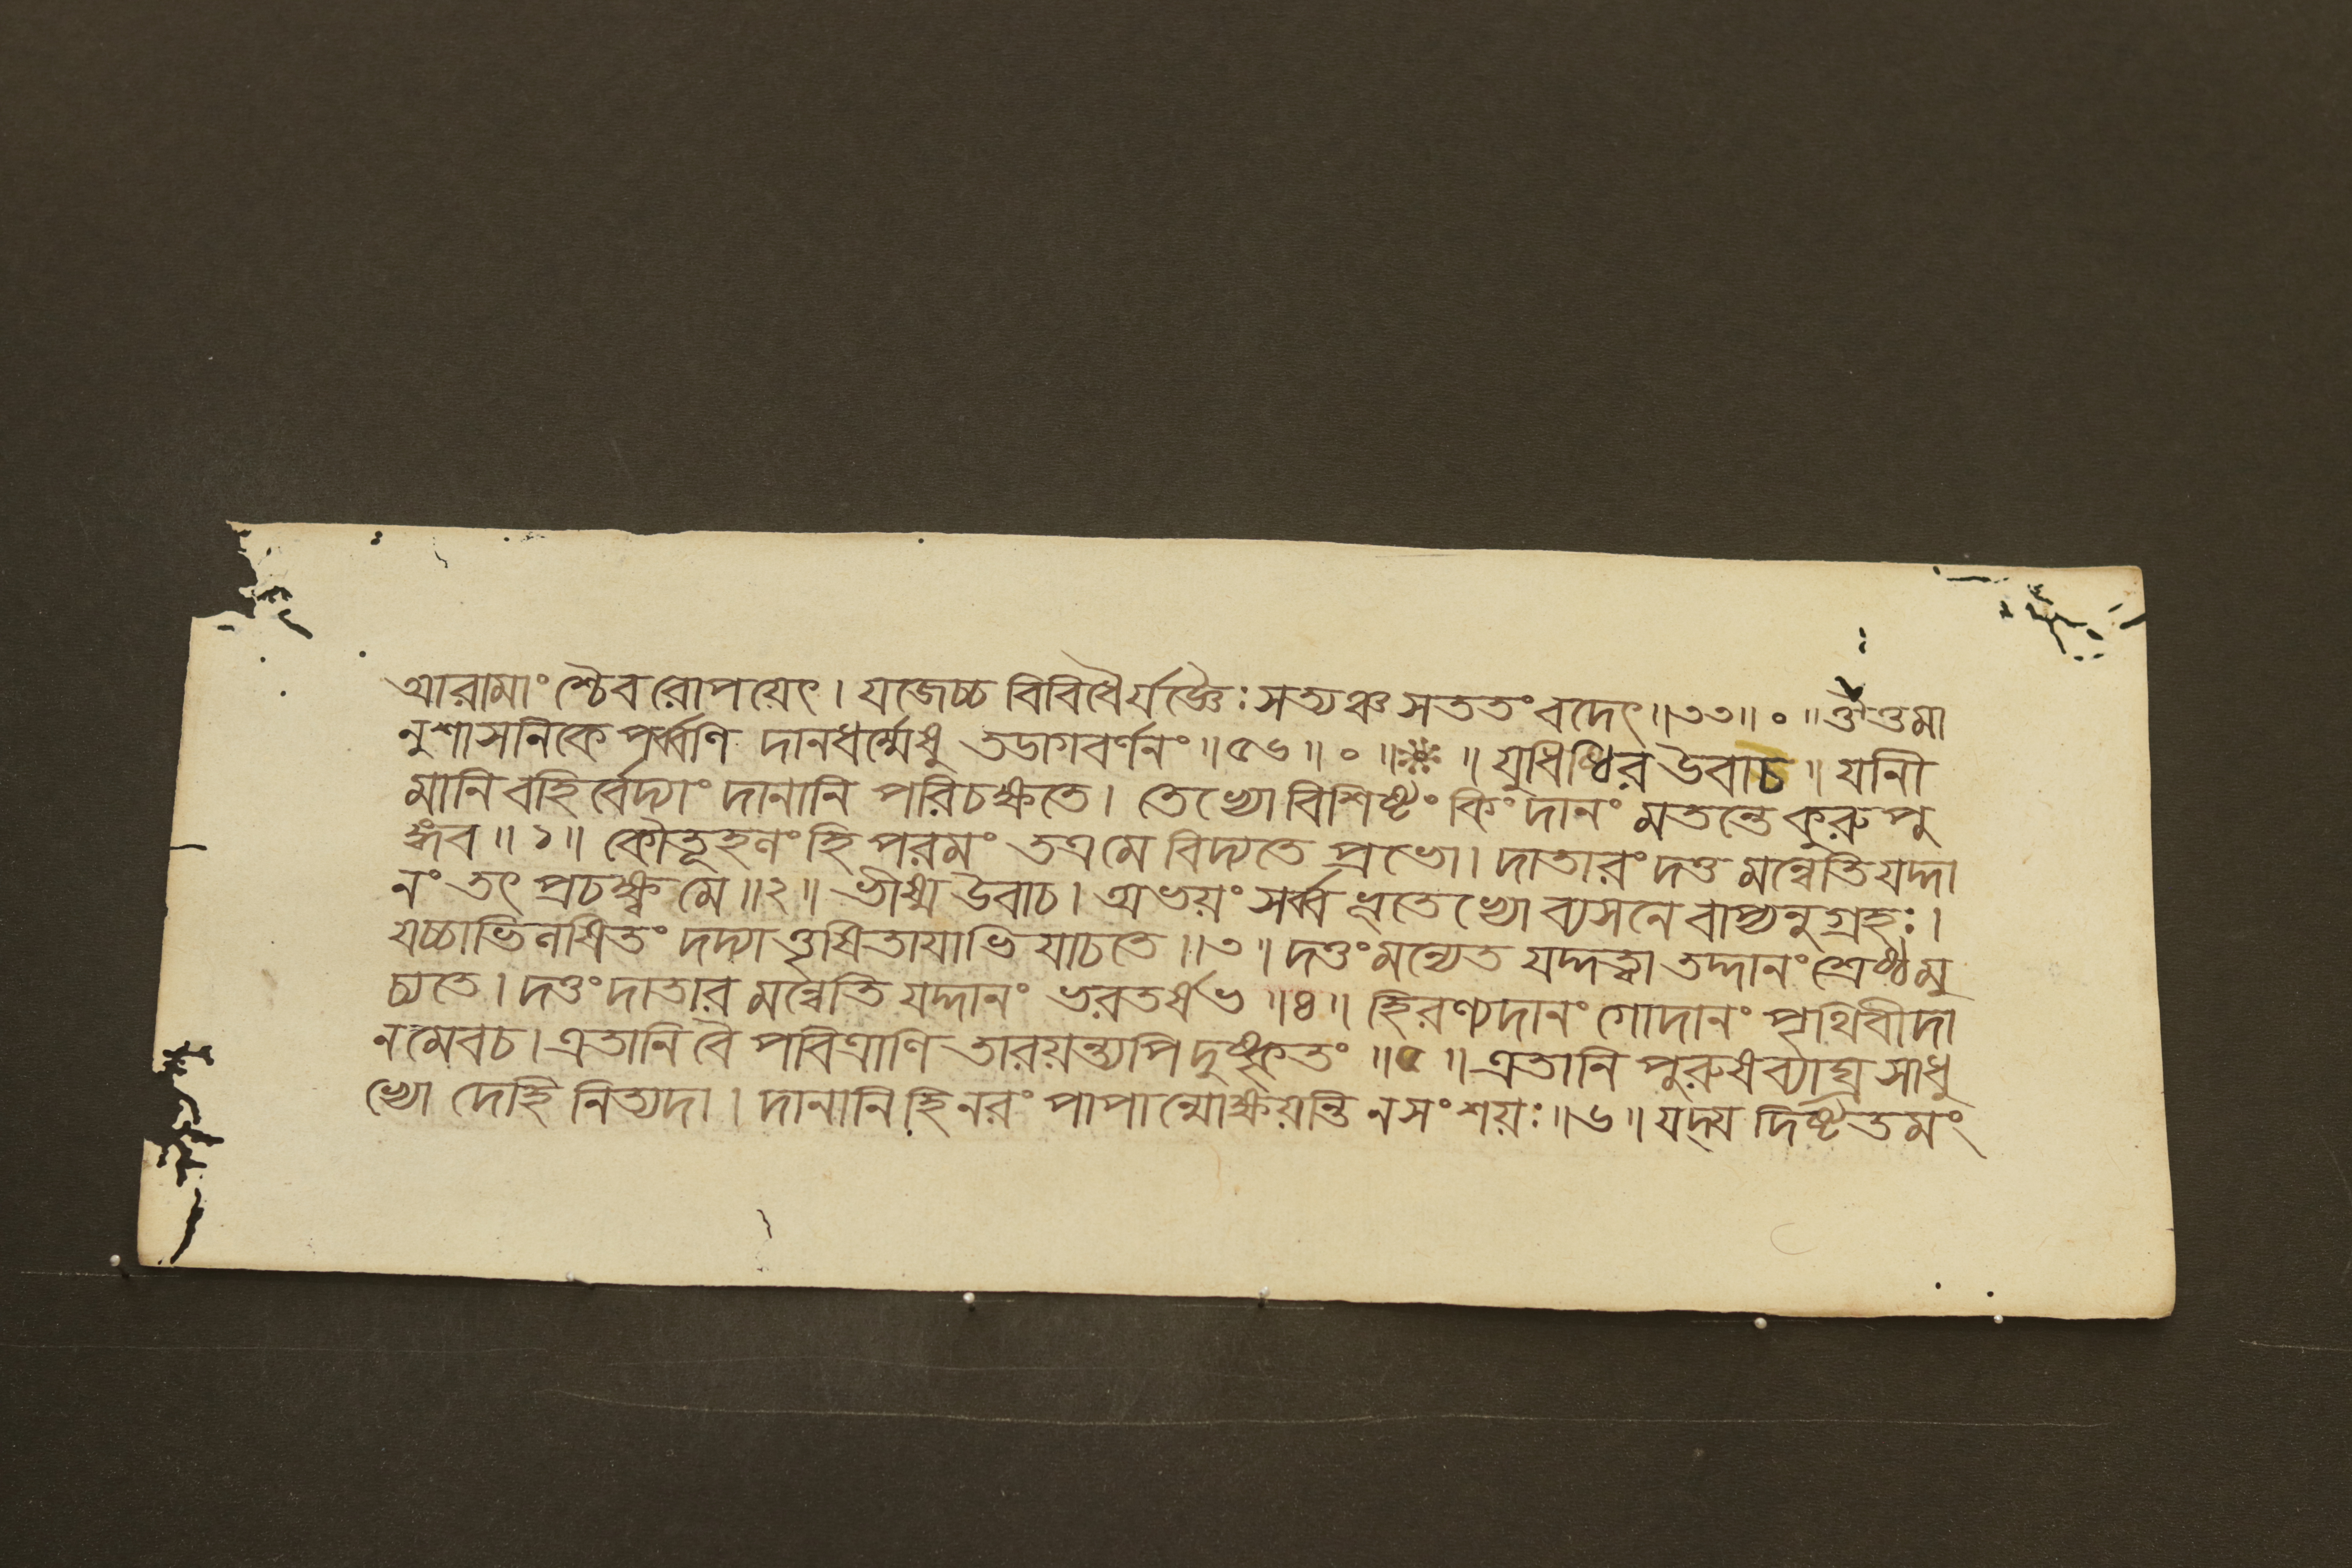 আরামাংশ্চৈব রোপয়েৎ। যজেচ্চ বিবিধৈর্যজ্ঞৈঃ সত্যঞ্চ সততং বদেৎ॥৩৩॥০॥ঔত্তমা
নুশাসনিকে পর্ব্বণি দানধর্ম্মেষু তডাগবর্ণনং॥৫৬॥০॥※॥ যুধিষ্ঠির উবাচ॥ যানী
মানি বহির্ব্বেদ্যাং দানানি পরিচক্ষতে। তেভ্যো বিশিষ্টং কিং দানং মতন্তে কুরুপু
ঙ্গব॥১॥ কৌতূহলং হি পরমং তত্র মে বিদ্যতে প্রভো। দাতারং দত্তমন্বেতি যদ্দা
নং তৎ প্রচক্ষ্ব মে॥২॥ ভীষ্ম উবাচ। অভয়ং সর্ব্বভূতেভ্যো ব্যসনে বাপ্যনুগ্রহঃ।
যচ্চাভিলষিতং দদ্যাতৃষিতায়াভিযাচতে॥৩॥ দত্তং মন্যেত যদ্দত্ত্বা তদ্দানং শ্রেষ্ঠমু
চ্যতে। দত্তং দাতারমন্বেতি যদ্দানং ভরতর্ষভ॥৪॥ হিরণ্যদানং গোদানং পৃথিবীদা
নমেব চ। এতানি বৈ পবিত্রাণি তারয়ন্ত্যপি দুষ্কৃতং॥৫॥ এতানি পুরুষব্যাঘ্র সাধু
ভ্যো দেহি নিত্যদা। দানানি হি নরং পাপান্মোক্ষয়ন্তি ন সংশয়ঃ॥৬॥ যদ্যদিষ্টতমং